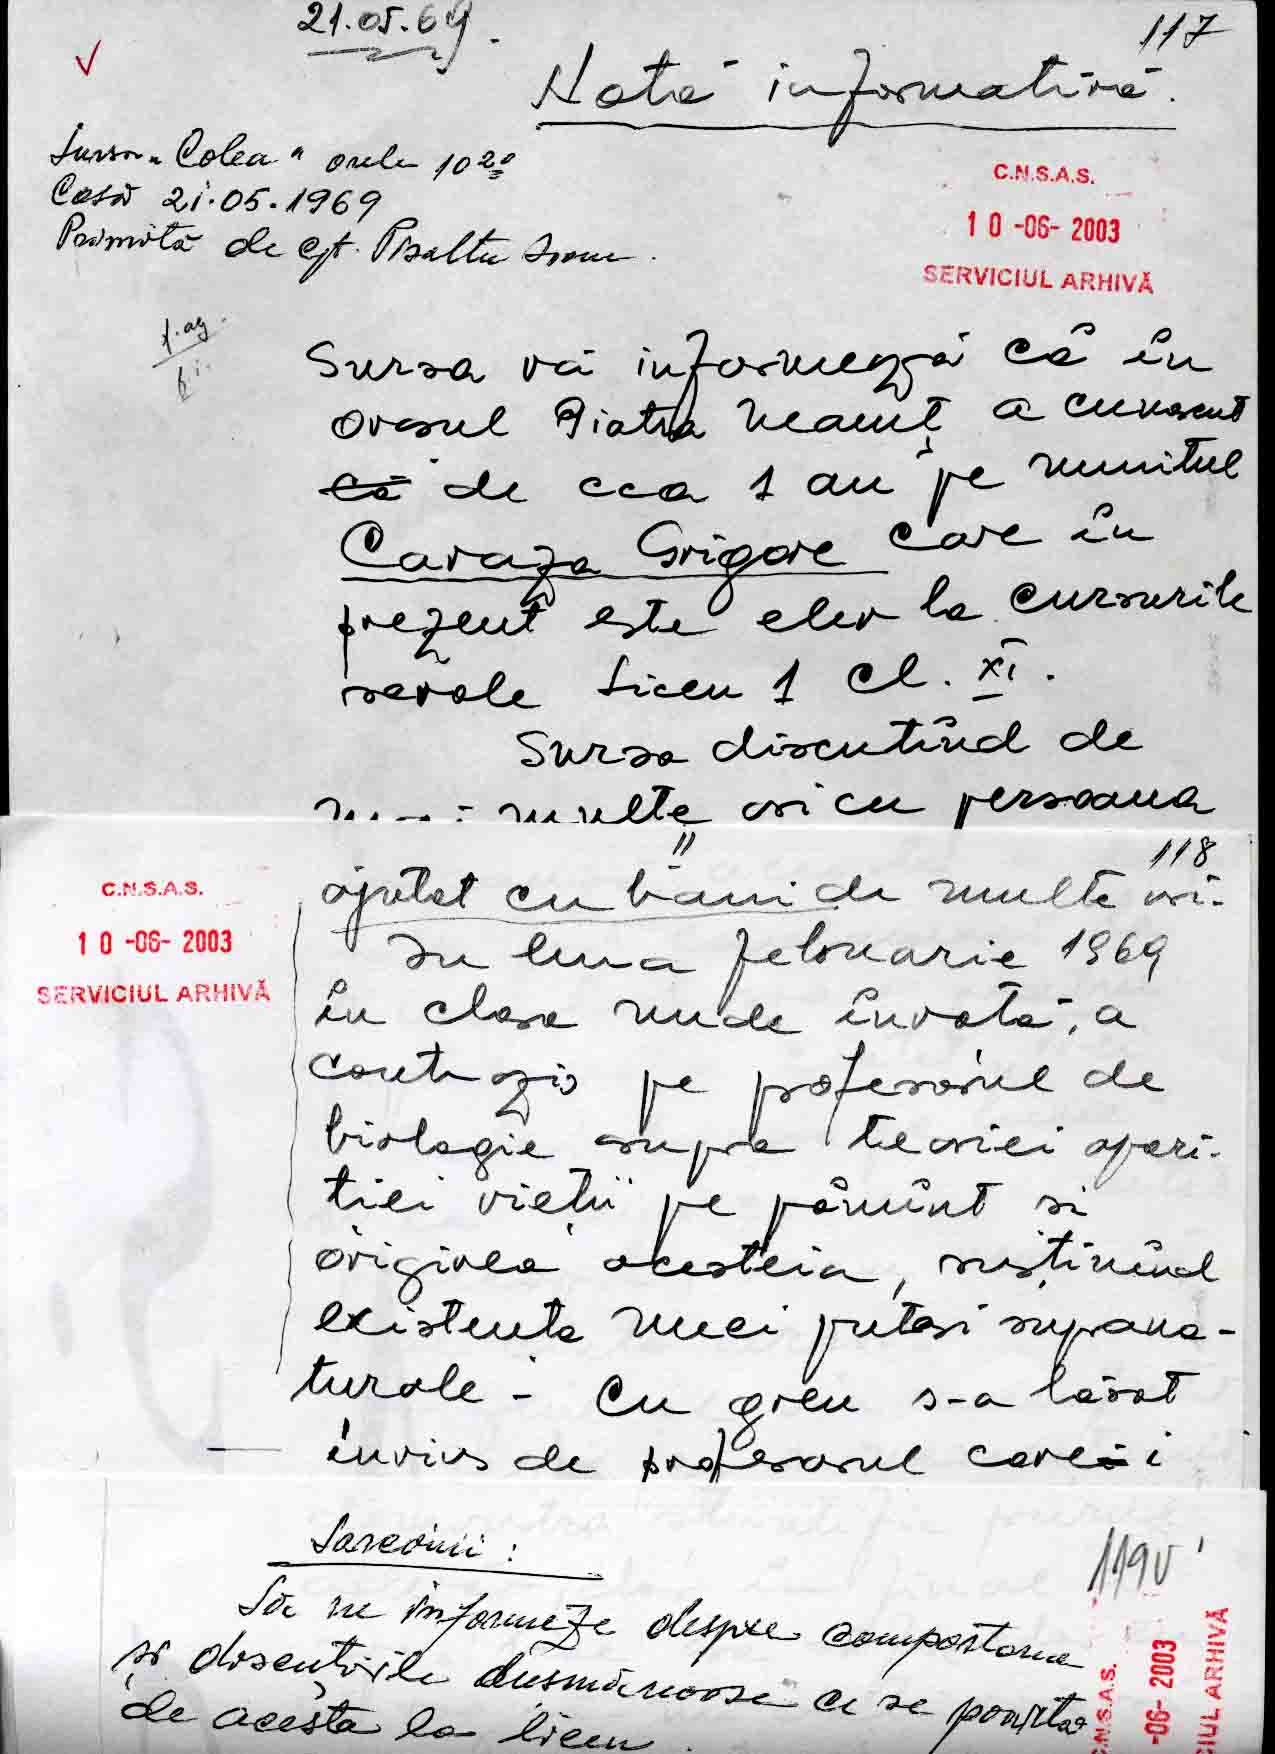 21.05.69.
117
Notă informativă.
Sursa "Colea" orele 10²⁰
Casa 21.05.1969
Primită de cpt. Psaltu Ioan.
C.N.S.A.S.
10-06-2003
SERVICIUL ARHIVĂ
Sursa vă informează că în
orașul Piatra Neamț a cunoscut
că de cca 1 an pe numitul
Caraza Grigore care în
prezent este elev la cursurile
serale Liceu 1 cl. XI.
Sursa discutînd de
mai multe ori cu persoana
118
C.N.S.A.S.
10-06-2003
SERVICIUL ARHIVĂ
ajutat cu bani de multe ori.
In luna februarie 1969
în clasa unde învață, a
contrazis pe profesorul de
biologie supra teoriei apari-
tiei vieții pe pămînt si
originea acesteia, susținînd
existenta unei puteri suprana-
turale - Cu greu s-a lăsat
învins de profesorul care-i
119v
Sarcini:
Să ne informeze despre comportarea
și discuțiile dusmănoase ce se poartă
de acesta la liceu.
C.N.S.A.S.
-06-2003
CIUL ARHIVĂ